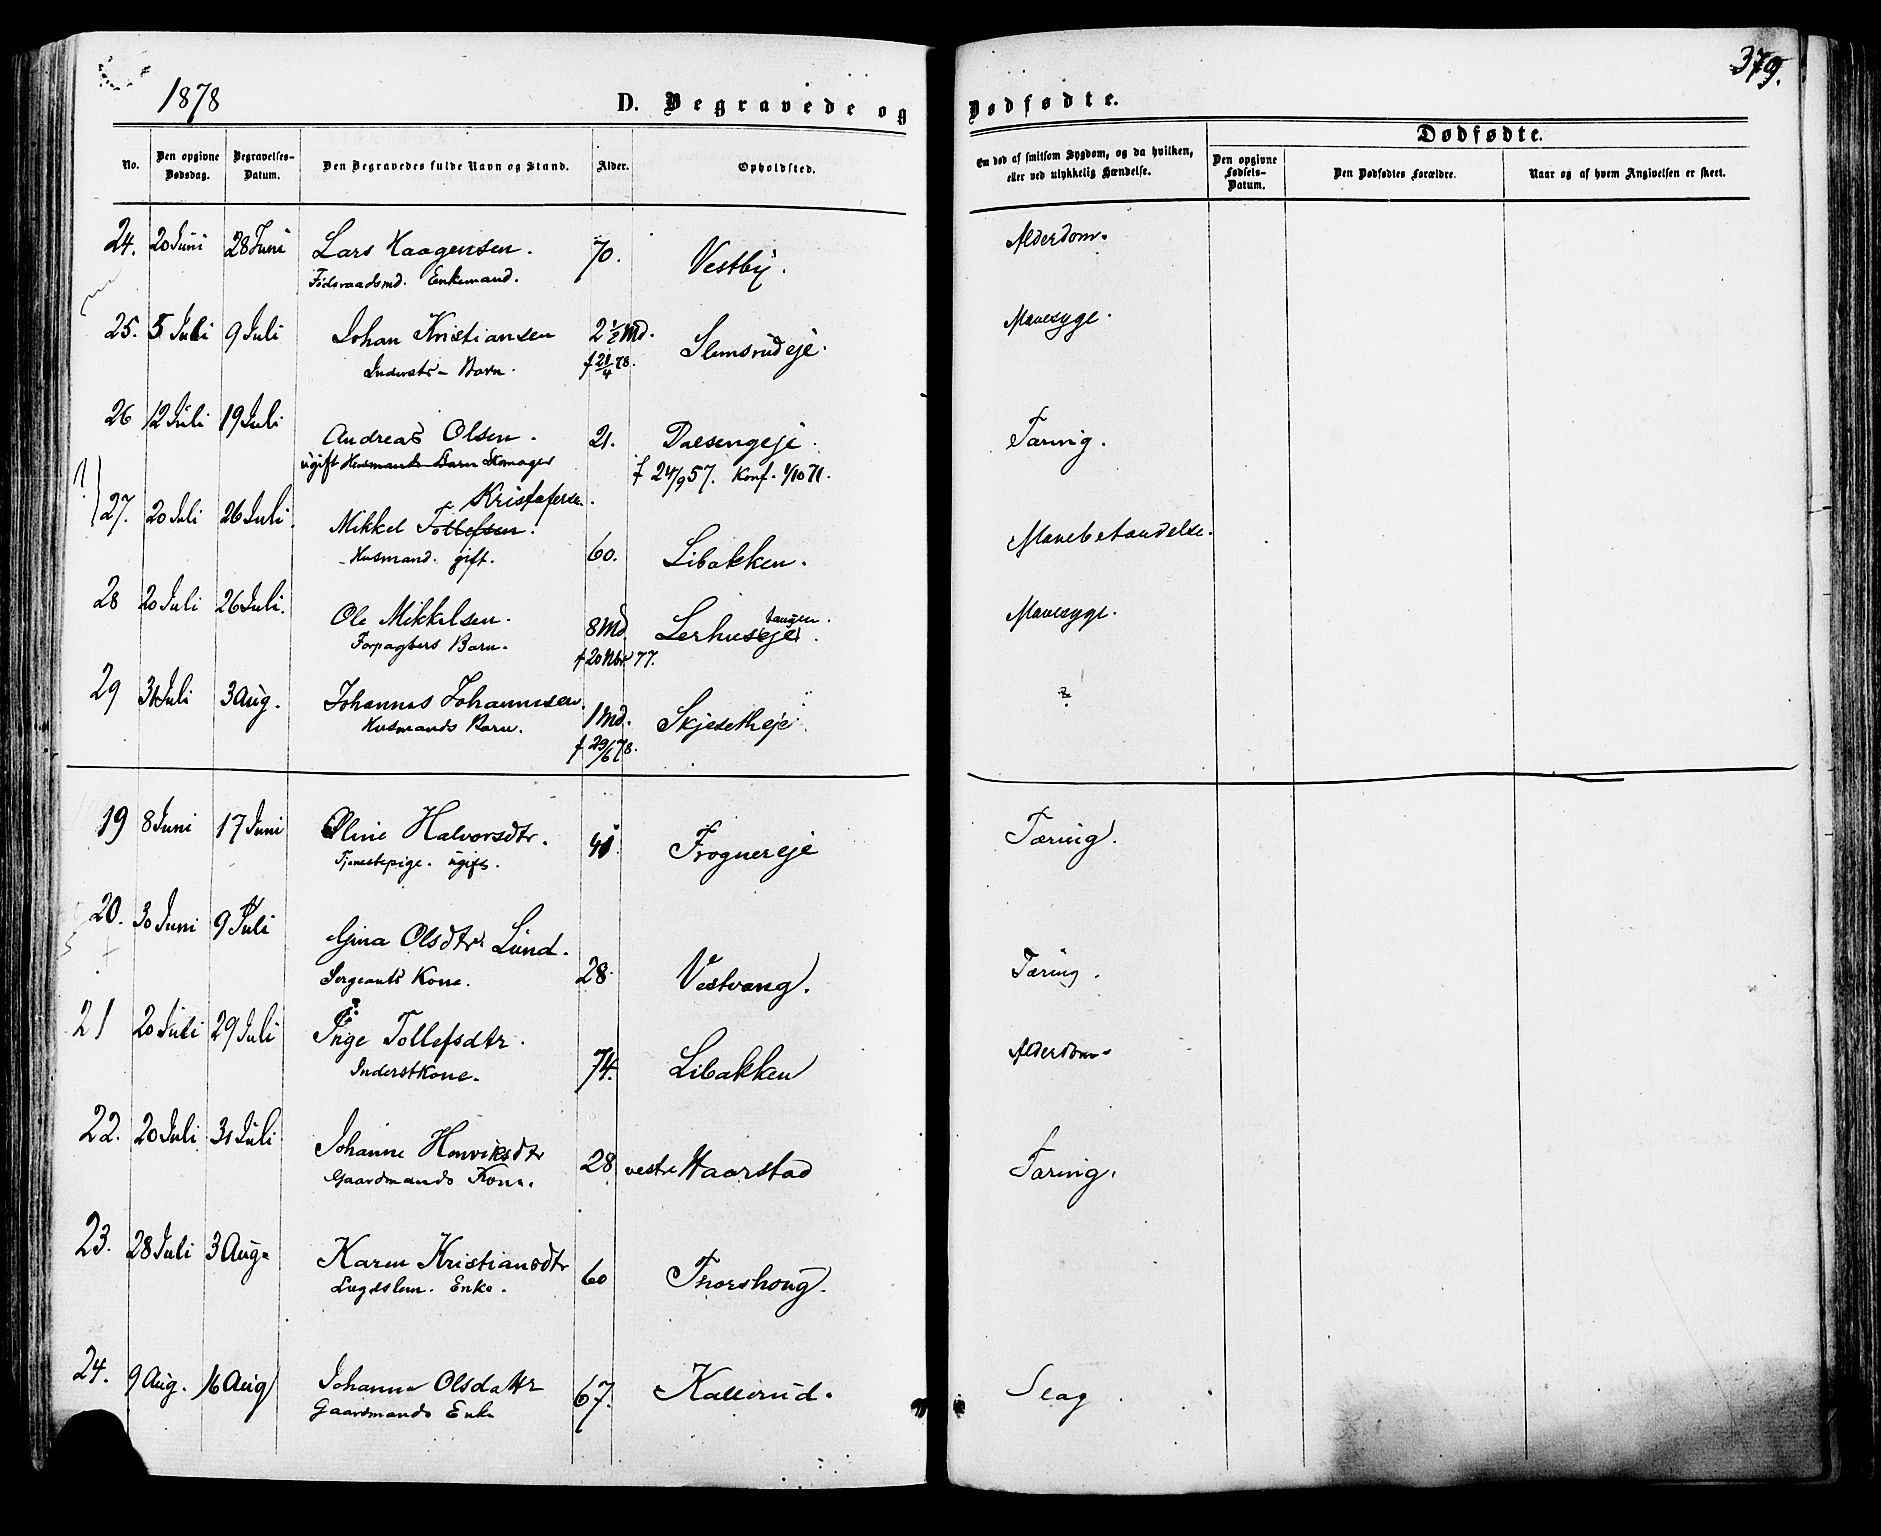 1878
D. Begravede og Dødfødte.
379.
No.
Den opgivne Dødsdag.
Begravelses-Datum.
Den Begravedes fulde Navn og Stand.
Alder.
Opholdsted.
Om død af smitsom Sygdom, og da hvilken, eller ved ulykkelig Hændelse.
Dødfødte.
Den opgivne Fødsels-Datum.
Den Dødfødtes Forældre.
Naar og af hvem Angivelsen er skeet.
24. 20 Juni 28 Juni Lars Haagensen. 70. Vestby. Alderdom.
Enkemand.
25. 5 Juli 9 Juli Johan Kristiansen 2 1/2 Md. Slemsrudeje. Mavesyge.
Inderst- Barn. f 21/4 78.
26 12 Juli 19 Juli Andreas Olsen. 21. Dalsengeje. Tæring.
ugift Husmands Barn Skomager f 24/9 57. Konf. 1/10 71.
Kristofersen.
27. 20 Juli 26 Juli. Mikkel Tollefsen. 60. Libakken. Mavebetændelse.
Husmand. gift.
28 20 Juli 26 Juli. Ole Mikkelsen. 8 Md. Lerhuseje tangen. Mavesyge.
Forpagters Barn. f 20 Nbr 77.
29 31 Juli 3 Aug. Johannes Johannesen. 1 Md. Skjesetheje. ?
Husmands Barn. f 29/6 78.
19 8 Juni 17 Juni Oline Halvorsdtr. 41. Frognereje Tæring.
Tjenestepige. ugift.
20. 30 Juni 9 Juli Gina Olsdtr Lund. 28. Vestvang. Tæring.
Sergeants Kone.
21 20 Juli 29 Juli Inge Tollefsdtr. 74. Libakken Alderdom.
Inderstkone.
22. 20 Juli 31 Juli Johanne Henriksdtr 28 vestre Haarstad Tæring.
Gaardmands Kone.
23. 28 Juli 3 Aug. Karen Kristiansdtr 60 Thorshoug.
Lægdslem. Enke.
24. 9 Aug. 16 Aug Johanne Olsdattr 67. Kallerud. Slag
Gaardmands Enke